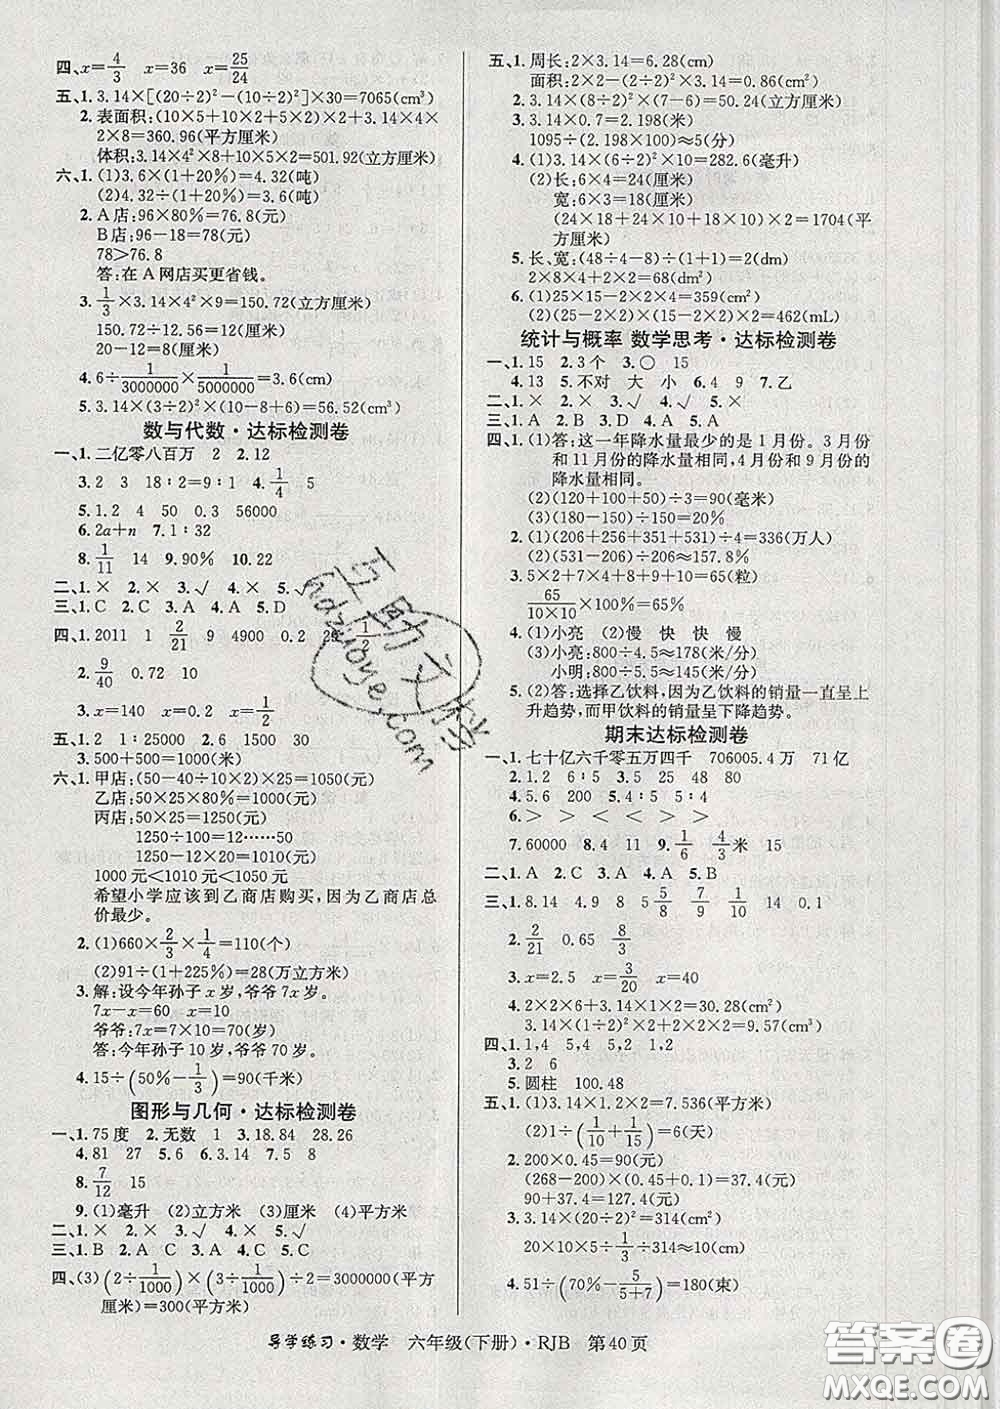 四、x=4/3 x=36 x=25/24
五、1. 3.14×[(20÷2)²-(10÷2)²]×30=7065(cm³)
2. 表面积:(10×5+10×2+5×2)×2+3.14×4×
2×8=360.96(平方厘米)
体积:3.14×4²×8+10×5×2=501.92(立方厘米)
六、1. (1)3.6×(1+20%)=4.32(吨)
(2)4.32×(1-20%)=3.456(吨)
2. A店:96×80%=76.8(元)
B店:96-18=78(元)
78>76.8
答:在A网店买更省钱。
3. 1/3×3.14×4²×9=150.72(立方厘米)
150.72÷12.56=12(厘米)
20-12=8(厘米)
4. 6÷1/3000000×1/5000000=3.6(厘米)
5. 3.14×(3÷2)²×(10-8+6)=56.52(cm³)
数与代数·达标检测卷
一、1. 二亿零八百万 2 2. 12
3. 2 3 18∶2=9∶1 4. 1/4 5
5. 1.2 4 50 0.3 56000
6. 2a+n 7. 1∶32
8. 1/11 14 9. 90% 10. 22
二、1. × 2. × 3. √ 4. × 5. √
三、1. C 2. C 3. A 4. A 5. D
四、1. 2011 1 2/21 9 4900 0.2 29 1/2
2. 9/40 0.72 10
3. x=140 x=0.2 x=1/2
五、1. 2 1∶25000 2. 6 150
3. 500+500=1000(米)
六、1. 甲店:(50-40÷10×2)×25=1050(元)
乙店:50×25×80%=1000(元)
丙店:50×25=1250(元)
1250÷100=12……50
1250-12×20=1010(元)
1000元<1010元<1050元
希望小学应该到乙商店购买,因为乙商店总
价最少。
2. (1)660×2/3×1/4=110(个)
(2)91÷(1+225%)=28(万立方米)
3. 解:设今年孙子x岁,爷爷7x岁。
7x-x=60 x=10
爷爷:7x=7×10=70(岁)
答:今年孙子10岁,爷爷70岁。
4. 15÷(50%-1/3)=90(千米)
图形与几何·达标检测卷
一、1. 75度 2. 无数 1 3. 18.84 28.26
4. 81 27 5. 6 6. 3.14 7. 5 8
8. 7/12 15
9. (1)毫升 (2)立方米 (3)厘米 (4)平方米
二、1. × 2. × 3. √ 4. √ 5. ×
三、1. B 2. A C 3. A 4. C 5. C
四、(3)(2÷1/1000)×(3÷1/1000)÷2=3000000(平方
厘米)=300(平方米)
五、1. 周长:2×3.14=6.28(cm)
面积:2×2-(2÷2)²×3.14=0.86(cm²)
2. 3.14×(8÷2)²×(7-6)=50.24(立方厘米)
3. 3.14×0.7=2.198(米)
1095÷(2.198×100)≈5(分)
4. (1)3.14×(6÷2)²×10=282.6(毫升)
(2)长:6×4=24(厘米)
宽:6×3=18(厘米)
(24×18+24×10+18×10)×2=1704(平
方厘米)
5. 长、宽:(48÷4-8)÷(1+1)=2(dm)
2×8×4+2×2=68(dm²)
6. (1)25×15-2×2×4=359(cm²)
(2)(25-2×2)×(15-2×2)×2=462(mL)
统计与概率 数学思考·达标检测卷
一、1. 15 2. 3个 3. ○ 15
4. 13 5. 不对 大 小 6. 4 9 7. 乙
二、1. × 2. × 3. √ 4. √ 5. ×
三、1. A 2. B 3. D 4. A 5. A
四、1. (1)答:这一年降水量最少的是1月份。3月份
和11月份的降水量相同,4月份和9月份的
降水量相同。
(2)(120+100+50)÷3=90(毫米)
(3)(180-150)÷150=20%
2. (1)(206+256+351+531)÷4=336(万人)
(2)(531-206)÷206≈157.8%
3. 5×2+7×4+8+1+6×3=65(粒)
65/10×10×100%=65%
4. (1)小亮 (2)慢 快 快 慢
(3)小亮:800÷4.5≈178(米/分)
小明:800÷5.5≈145(米/分)
5. (2)答:选择乙饮料,因为乙饮料的销量一直呈上
升趋势,而甲饮料的销量呈下降趋势。
期末达标检测卷
一、1. 七十亿六千零五万四千 706005.4万 71亿
2. 1.2 6∶5 3. 5 25 48 80
4. 5.6 200 5. 4∶5 4∶5
6. < > > < < >
7. 60000 8. 30 9. 1/6 4/3米 15
二、1. A 2. C 3. A 4. A 5. B
三、1. 8.14 4.9 8 5 5/8 7/9 1/10 14 0.1
2. 2/21 0.65 8/3
3. x=2.5 x=3/20 x=40
4. 2×2×6+3.14×1×2=30.28(cm²)
3.14×(1÷2)²×2+2×2×2=9.57(cm³)
四、1. 1,4 5,4 5,2 1,2
3. 2 6
5. 圆柱 100.48
五、1. (1)3.14×1.2×2=7.536(平方米)
(2)1÷(1/10+1/15)=6(天)
2. 200×0.45=90(元)
(268-200)×(0.45+0.1)=37.4(元)
90+37.4=127.4(元)
3. 3.14×(20÷2)²=314(cm²)
20×10×5÷1/3÷314≈10(cm)
4. 51÷(70%-5/5+7)=180(束)
导学练习·数学 六年级(下册)·RJB 第40页
互助文档
hdzuoye.com
答案圈
MXQE.COM